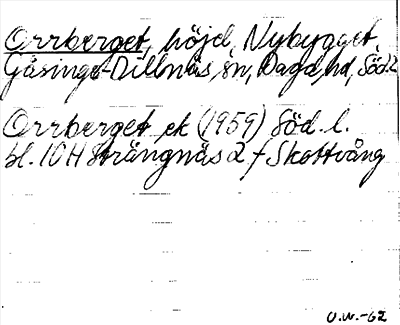 Orrberget, höjd, Nybygget,
Gåsinge-Dillnäs sn, Daga hd, Söd.l.
Orrberget ek (1959) Söd. l.
bl. 10 H Strängnäs 2 f Skottvång
U.W.-62